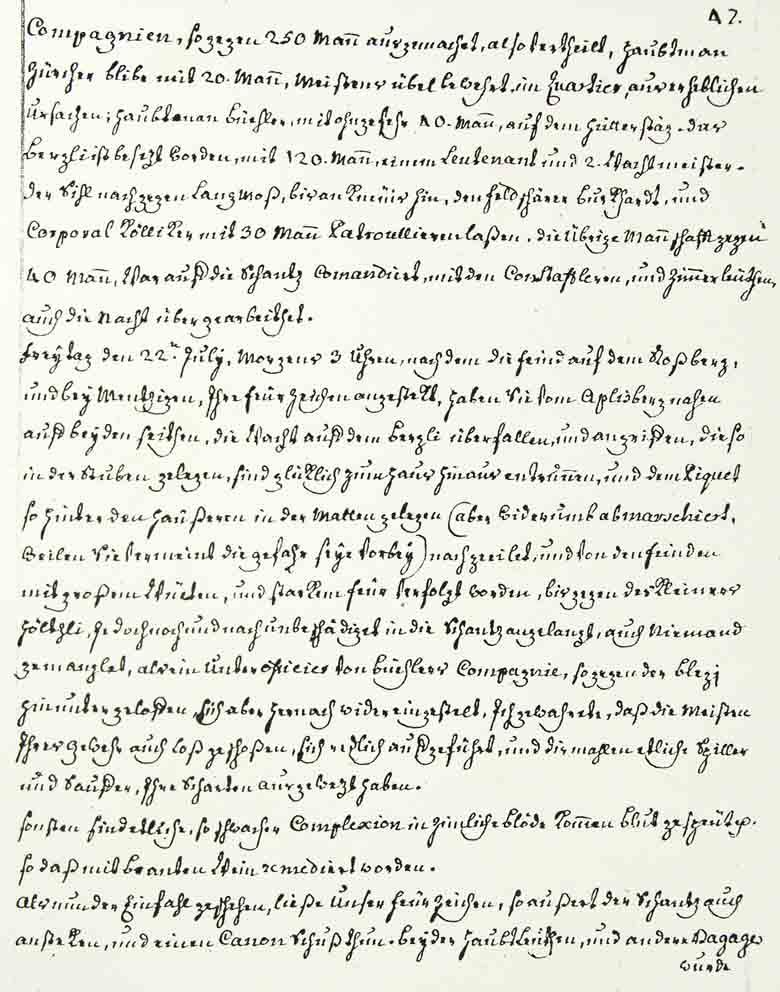 47.
Compagnien, so gegen 250 Mañ ausgemachet, also vertheilt, Haubtman
Zürcher blibe mit 20. Mañ, Meistens übel bewehrt, im Quartier, aus erheblichen
Ursachen; Haubtman Büehler, mit ohngefehr 40. Mañ, auf dem Hüllersteg. das
Bergli ist besezt worden, mit 120. Mañ, einem Leutenant und 2. Wachtmeister.
der Sihl nach gegen Langmoß, bis an hin, den Feldschärer Burkhardt, und
Corporal Kölliker mit 30 Mañ Patroullieren laßen. die übrige Mañschafft gegen
40 Mañ, war auf die Schantz Comandiert, mit den Constafleren, und Zimerleüthen,
auch die Nacht über gearbeithet.
Freytag den 22.ten July, Morgens 3 Uhren, nach dem die feind auf dem Roßberg,
und bey Mentzigen, Ihre feür Zeichen angestekt, haben Sie vom nahen
auf beyden seithen, die Wacht auf dem Bergli überfallen, und angriffen, die so
in der Stuben gelegen, sind glüklich zum Haus hinaus entrunnen, und dem Piquet
so hinter den Haüßeren in der Matten gelegen (aber widerumb abmarschiert,
weilen Sie vermeint die gefahr seye vorbey) nachgeeilet, und von den feinden
mit großem Wüeten, und starkem feür verfolgt worden, bis gegen des Kleiners
Höltzli, jedoch noch und nach unbeschädiget in die Schantz angelangt, auch Niemand
gemanglet, als ein Unterofficier von Büehlers Compagnie, so gegen der
hinunter geloffen, sich aber hernach wider eingestelt, Ich gewahrete, daß die Meisten
Ihres gewehr auch loß geschoßen, sich redlich aufgeführt, und dismahlen etliche Spiller
und Sauffer, Ihre Scharten ausgewezt haben.
sonsten sind etliche, so schwacher Complexion in zimliche blöde komen blut gespeüt.
so daß mit branten Wein remediert worden.
Als nun der Einfahl geschehen, ließe Unser feür Zeichen, so außert der Schantz auch
ansteken, und einen Canon Schuß thun. beyder Haubtleüthen, und andere Bagage
wurde